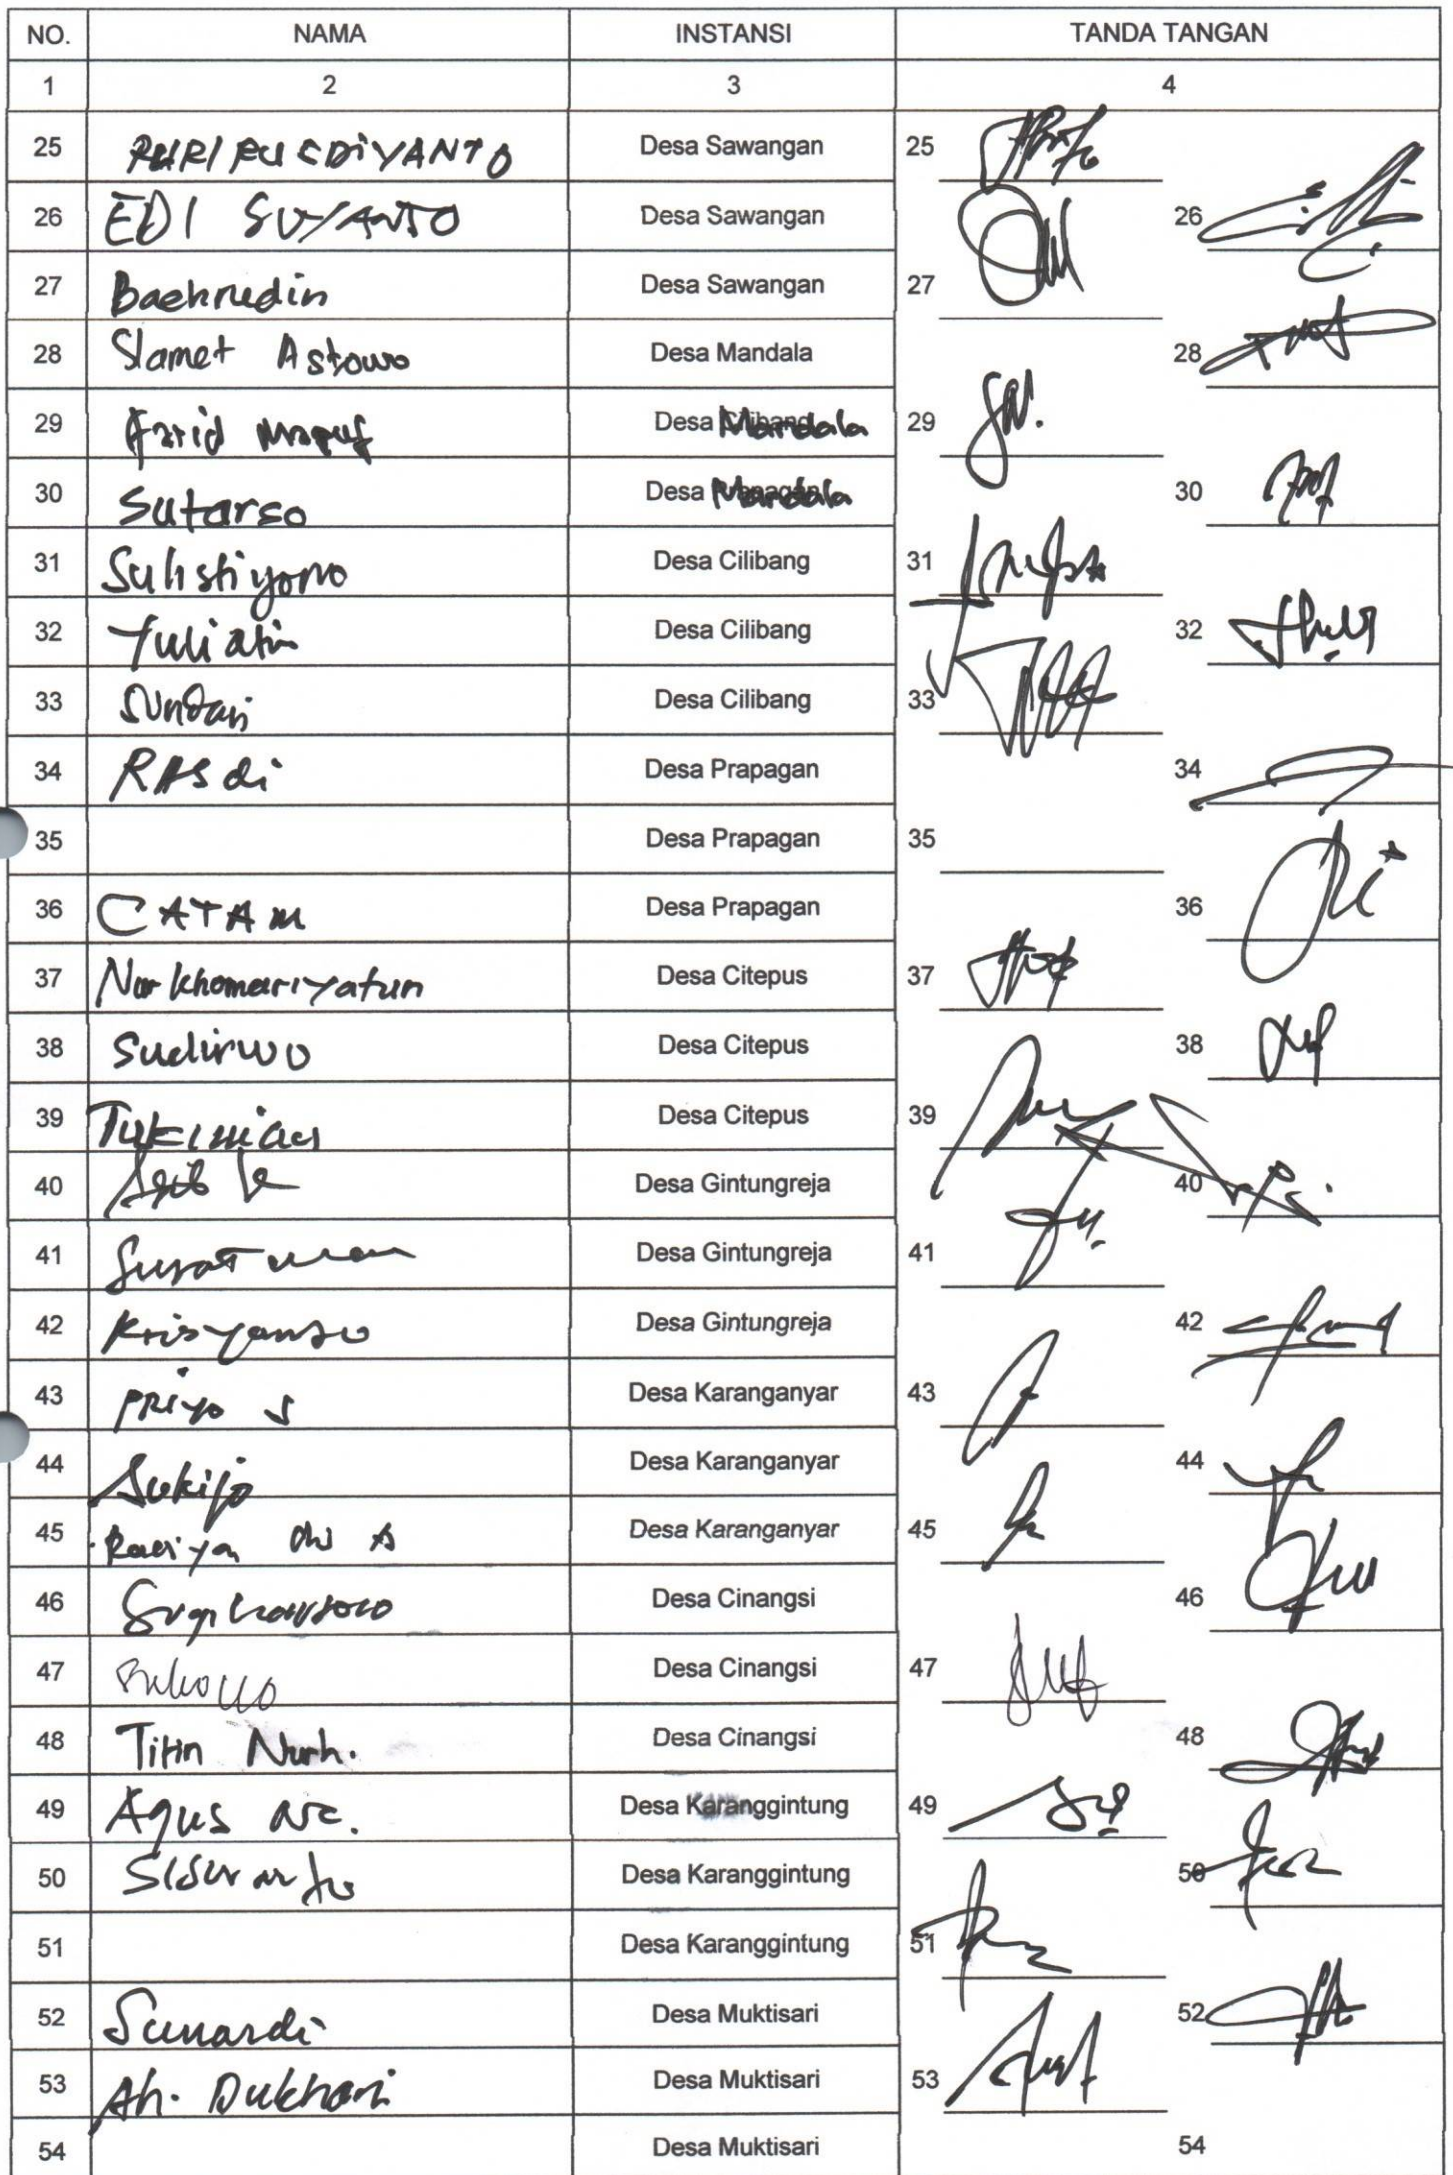 NO. NAMA INSTANSI TANDA TANGAN
1 2 3 4
25 Desa Sawangan 25
26 EDI SUYANTO Desa Sawangan 26
27 Baehrudin Desa Sawangan 27
28 Slamet Astowo Desa Mandala 28
29 Farid Desa Mandala 29
30 Sutarso Desa Mandala 30
31 Sulistiyono Desa Cilibang 31
32 Yuliatin Desa Cilibang 32
33 Sundari Desa Cilibang 33
34 RASdi Desa Prapagan 34
35 Desa Prapagan 35
36 CATAM Desa Prapagan 36
37 Nur khomariyatun Desa Citepus 37
38 Sudirwo Desa Citepus 38
39 Desa Citepus 39
40 Desa Gintungreja 40
41 Desa Gintungreja 41
42 Krisyanto Desa Gintungreja 42
43 PRiyo S Desa Karanganyar 43
44 Sukijo Desa Karanganyar 44
45 Desa Karanganyar 45
46 Desa Cinangsi 46
47 Desa Cinangsi 47
48 Titin Nurh. Desa Cinangsi 48
49 Agus NC. Desa Karanggintung 49
50 Desa Karanggintung 50
51 Desa Karanggintung 51
52 Sunardi Desa Muktisari 52
53 Ah. Dukhari Desa Muktisari 53
54 Desa Muktisari 54